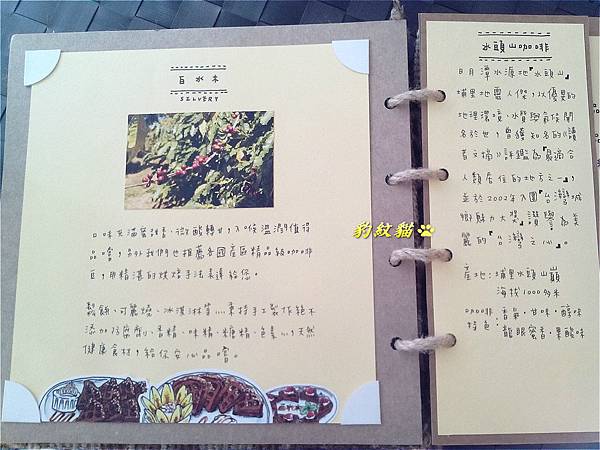 白水木
SELVERY
豹紋貓
口味充滿蜜甜香、微酸轉甘，入喉溫潤值得
品嚐，另外我們也推薦各國產區精品級咖啡
豆，用精湛的烘焙手法表達給您。
鬆餅、可麗燒、冰淇淋等....秉持手工製作絕不
添加防腐劑、香精、味精、糖精、色素...，天然
健康食材，給你安心品嚐。
水頭山咖啡
日月潭水源地『水頭山』
埔里地靈人傑，以優異的
地理環境、水質與氣候聞
名於世，曾獲知名的《讀
者文摘》評鑑為『最適合
人類居住的地方之一』，
並於2002年入圍『台灣城
鄉魅力大獎』讚譽為美
麗的『台灣之心』。
產地：埔里水頭山巔
海拔1000多米
咖啡 香氣，甘味，醇味
特色：龍眼蜜香，果酸味